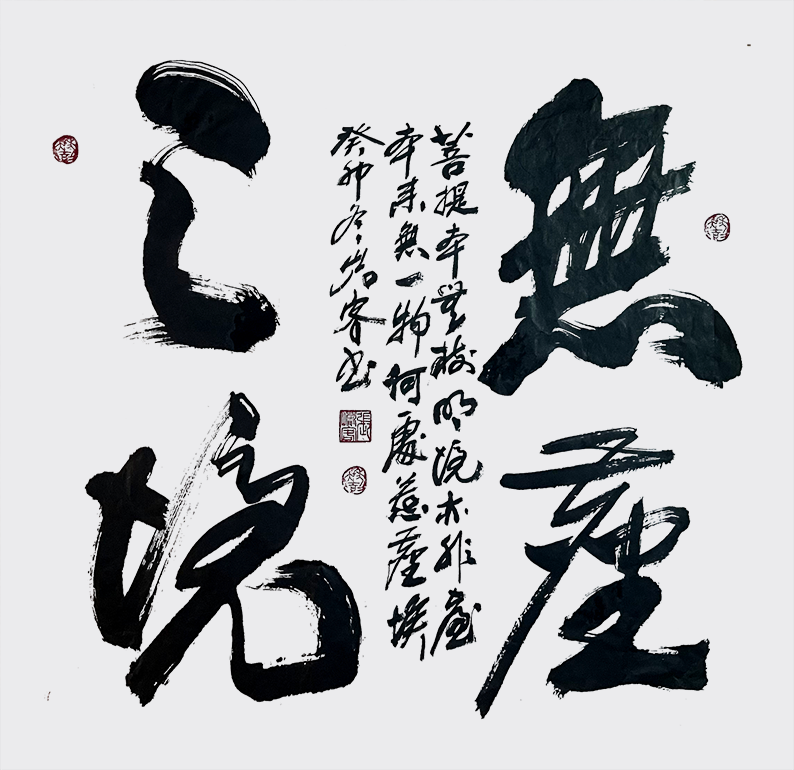 無塵
之境
菩提本無樹明境亦非臺
本來無一物何處惹塵埃
癸卯冬岩客书